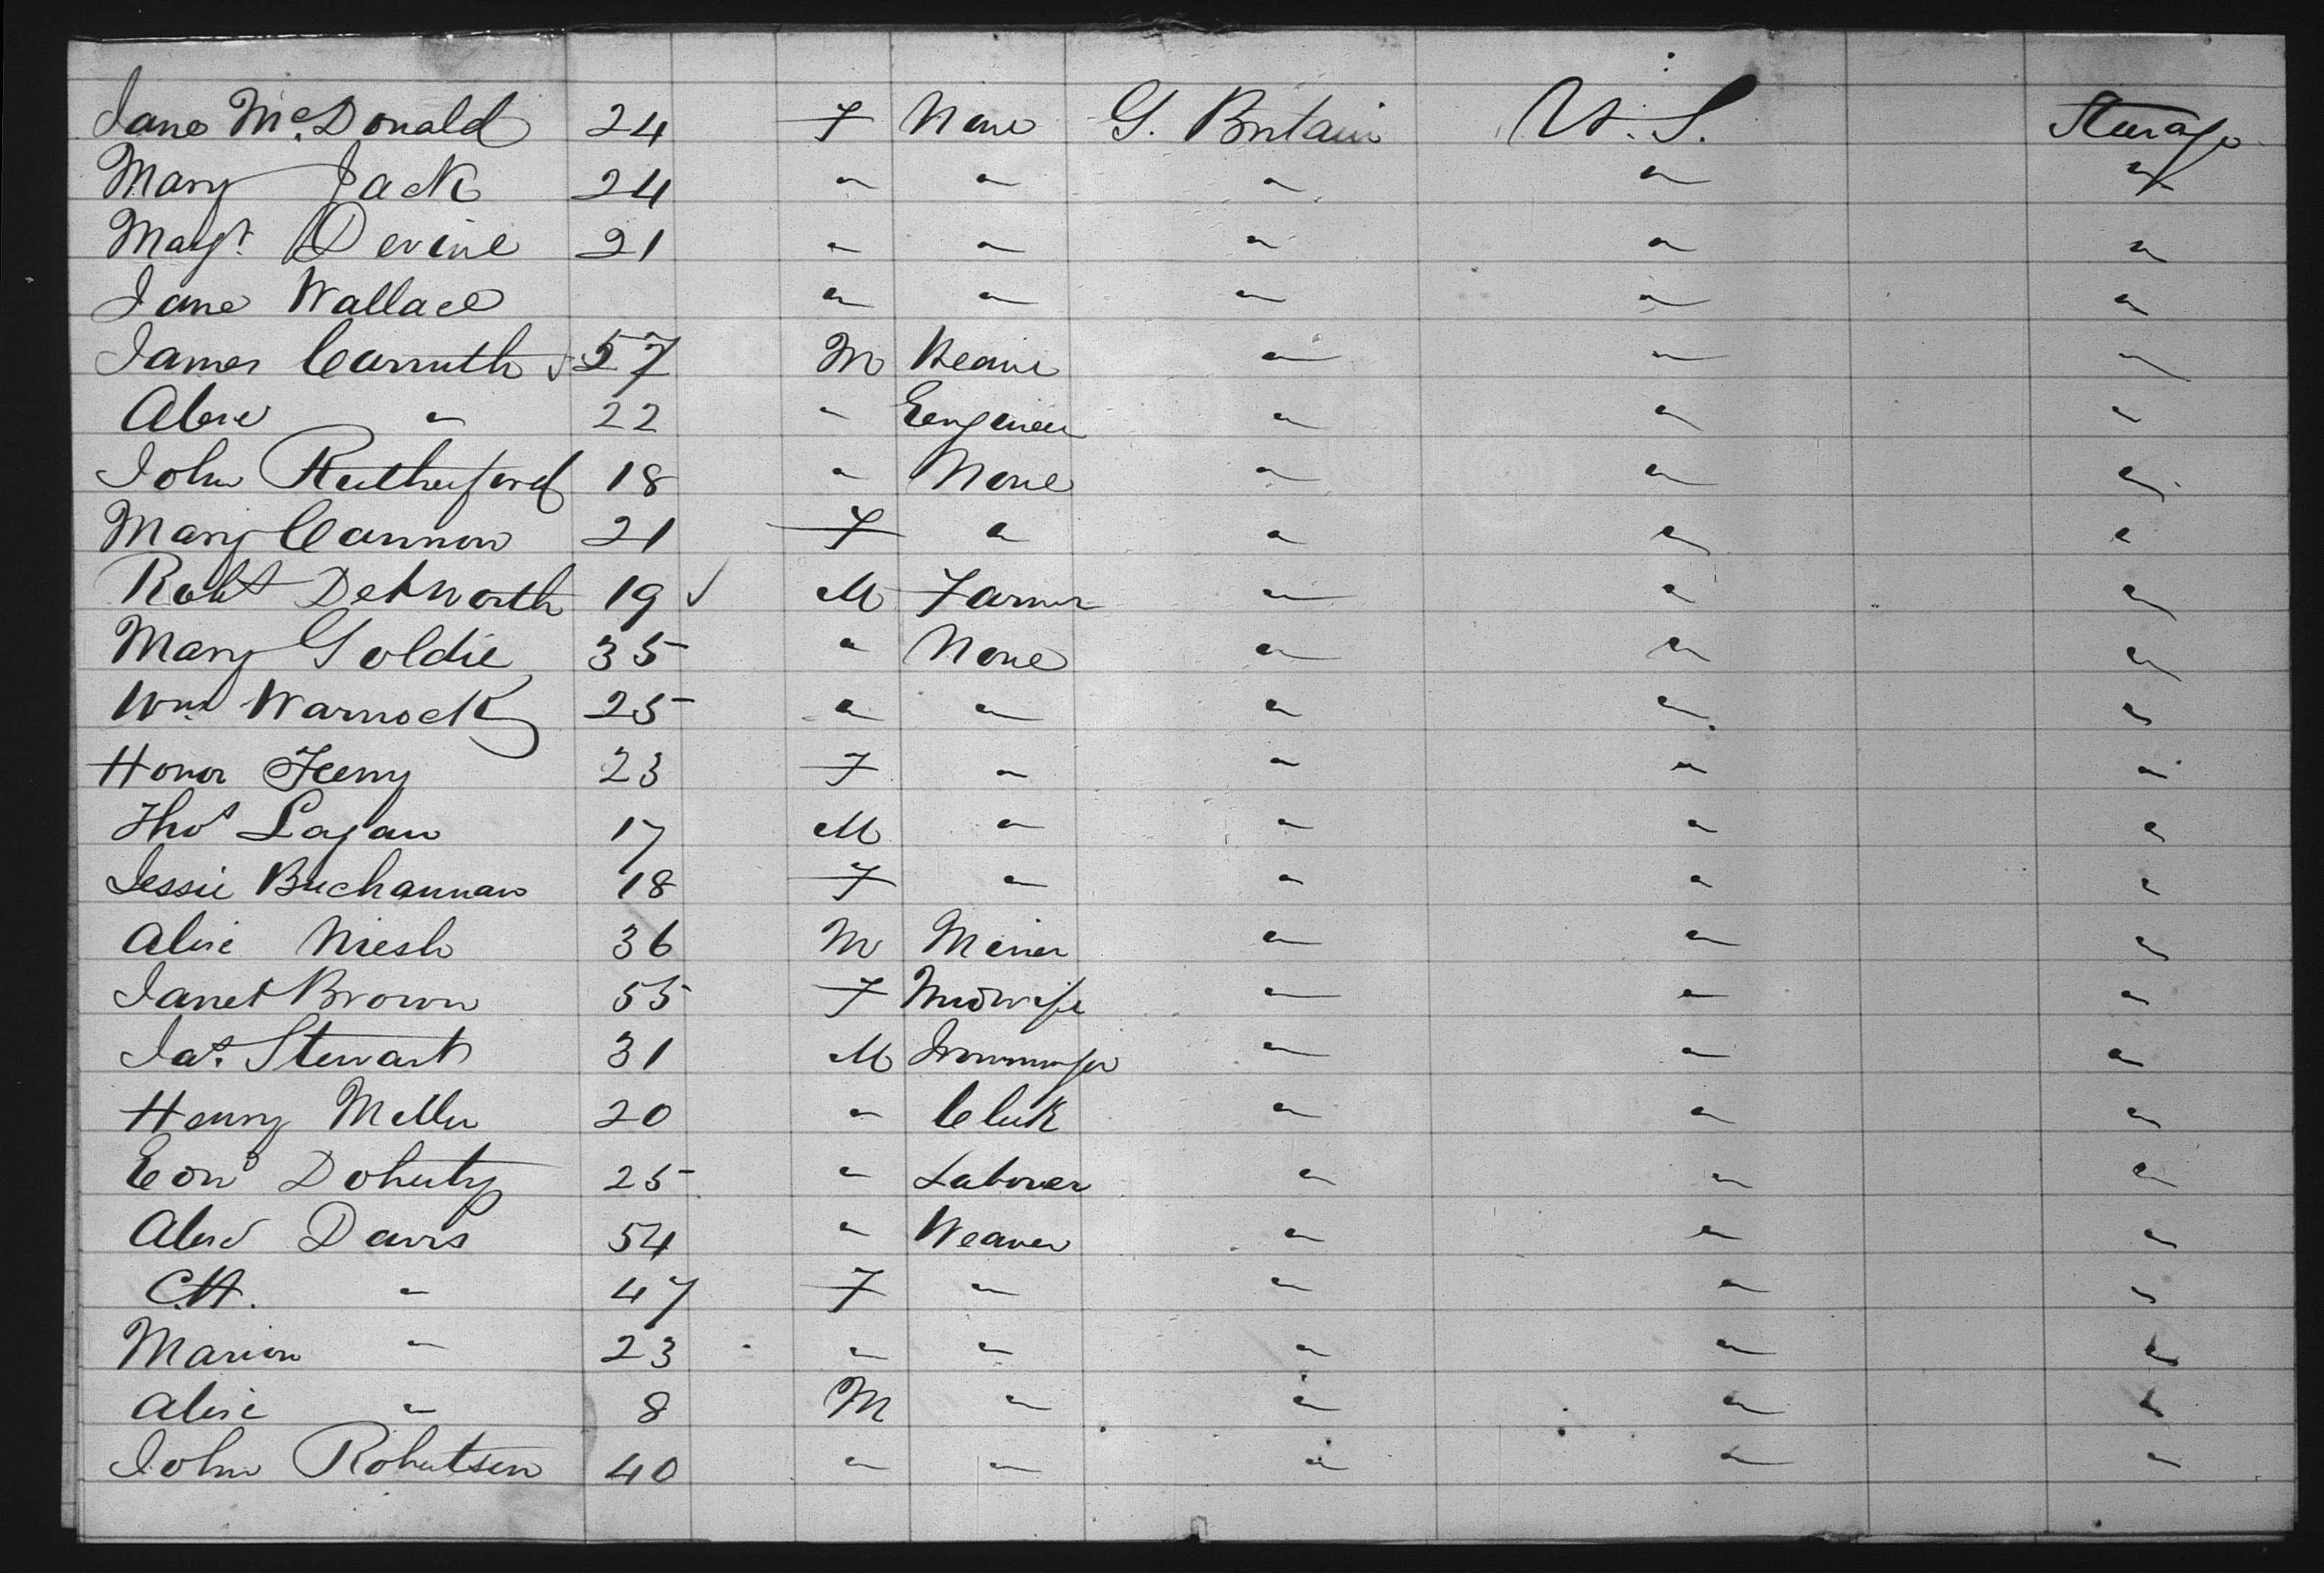 Jane McDonald 24 F None G. Britain U.S. Steerage
Mary Jack 24 " " " " "
Magt. Devine 21 " " " " "
Jane Wallace " " " " "
James Carruth 57 M " " "
Alexr " 22 " Engineer " " "
John Rutherford 18 " None " " "
Mary Cannon 21 F " " " "
Robt Detworth 19 ✓ M Farmer " " "
Mary Goldie 35 " None " " "
Wm Warnock 25 " " " " "
Honor Feeny 23 F " " " "
Thos Lagan 17 M " " " "
Jessie Buchannan 18 F " " " "
Alexr 36 M Miner " " "
Janet Brown 55 F Midwife " " "
Jas. Stewart 31 M " " "
Henry Meller 20 " Clerk " " "
Edwd Doherty 25 " Laborer " " "
Alexr Davis 54 " Weaver " " "
C.H. " 47 F " " " "
Marion " 23 " " " " "
Alexr " 8 M " " " "
John Robertson 40 " " " " "